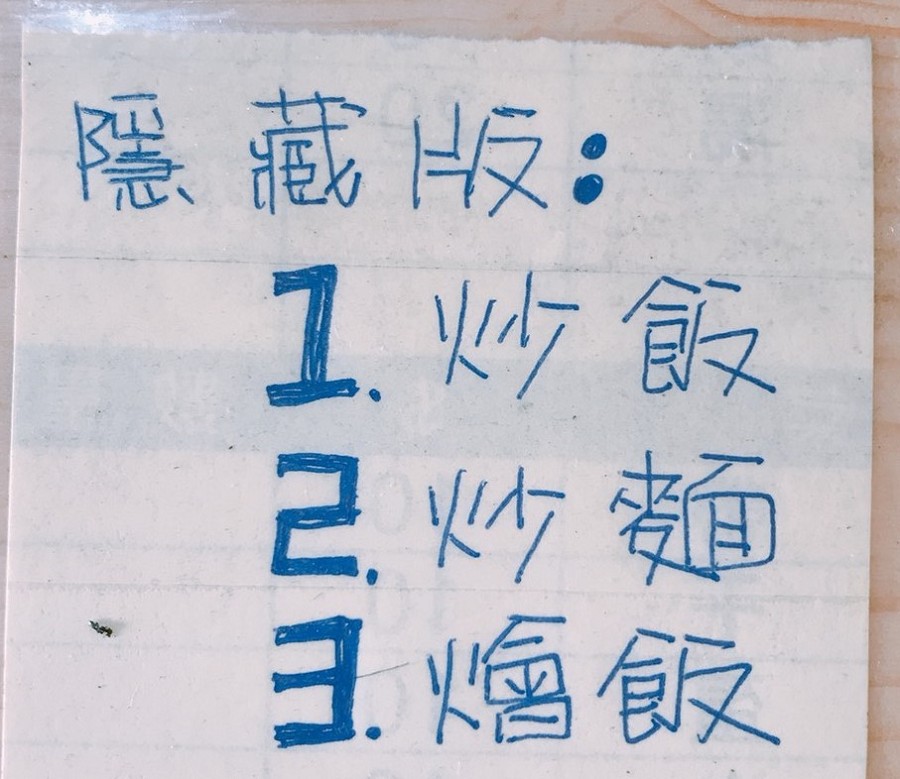 隱藏版:
1. 炒飯
2. 炒麵
3. 燴飯